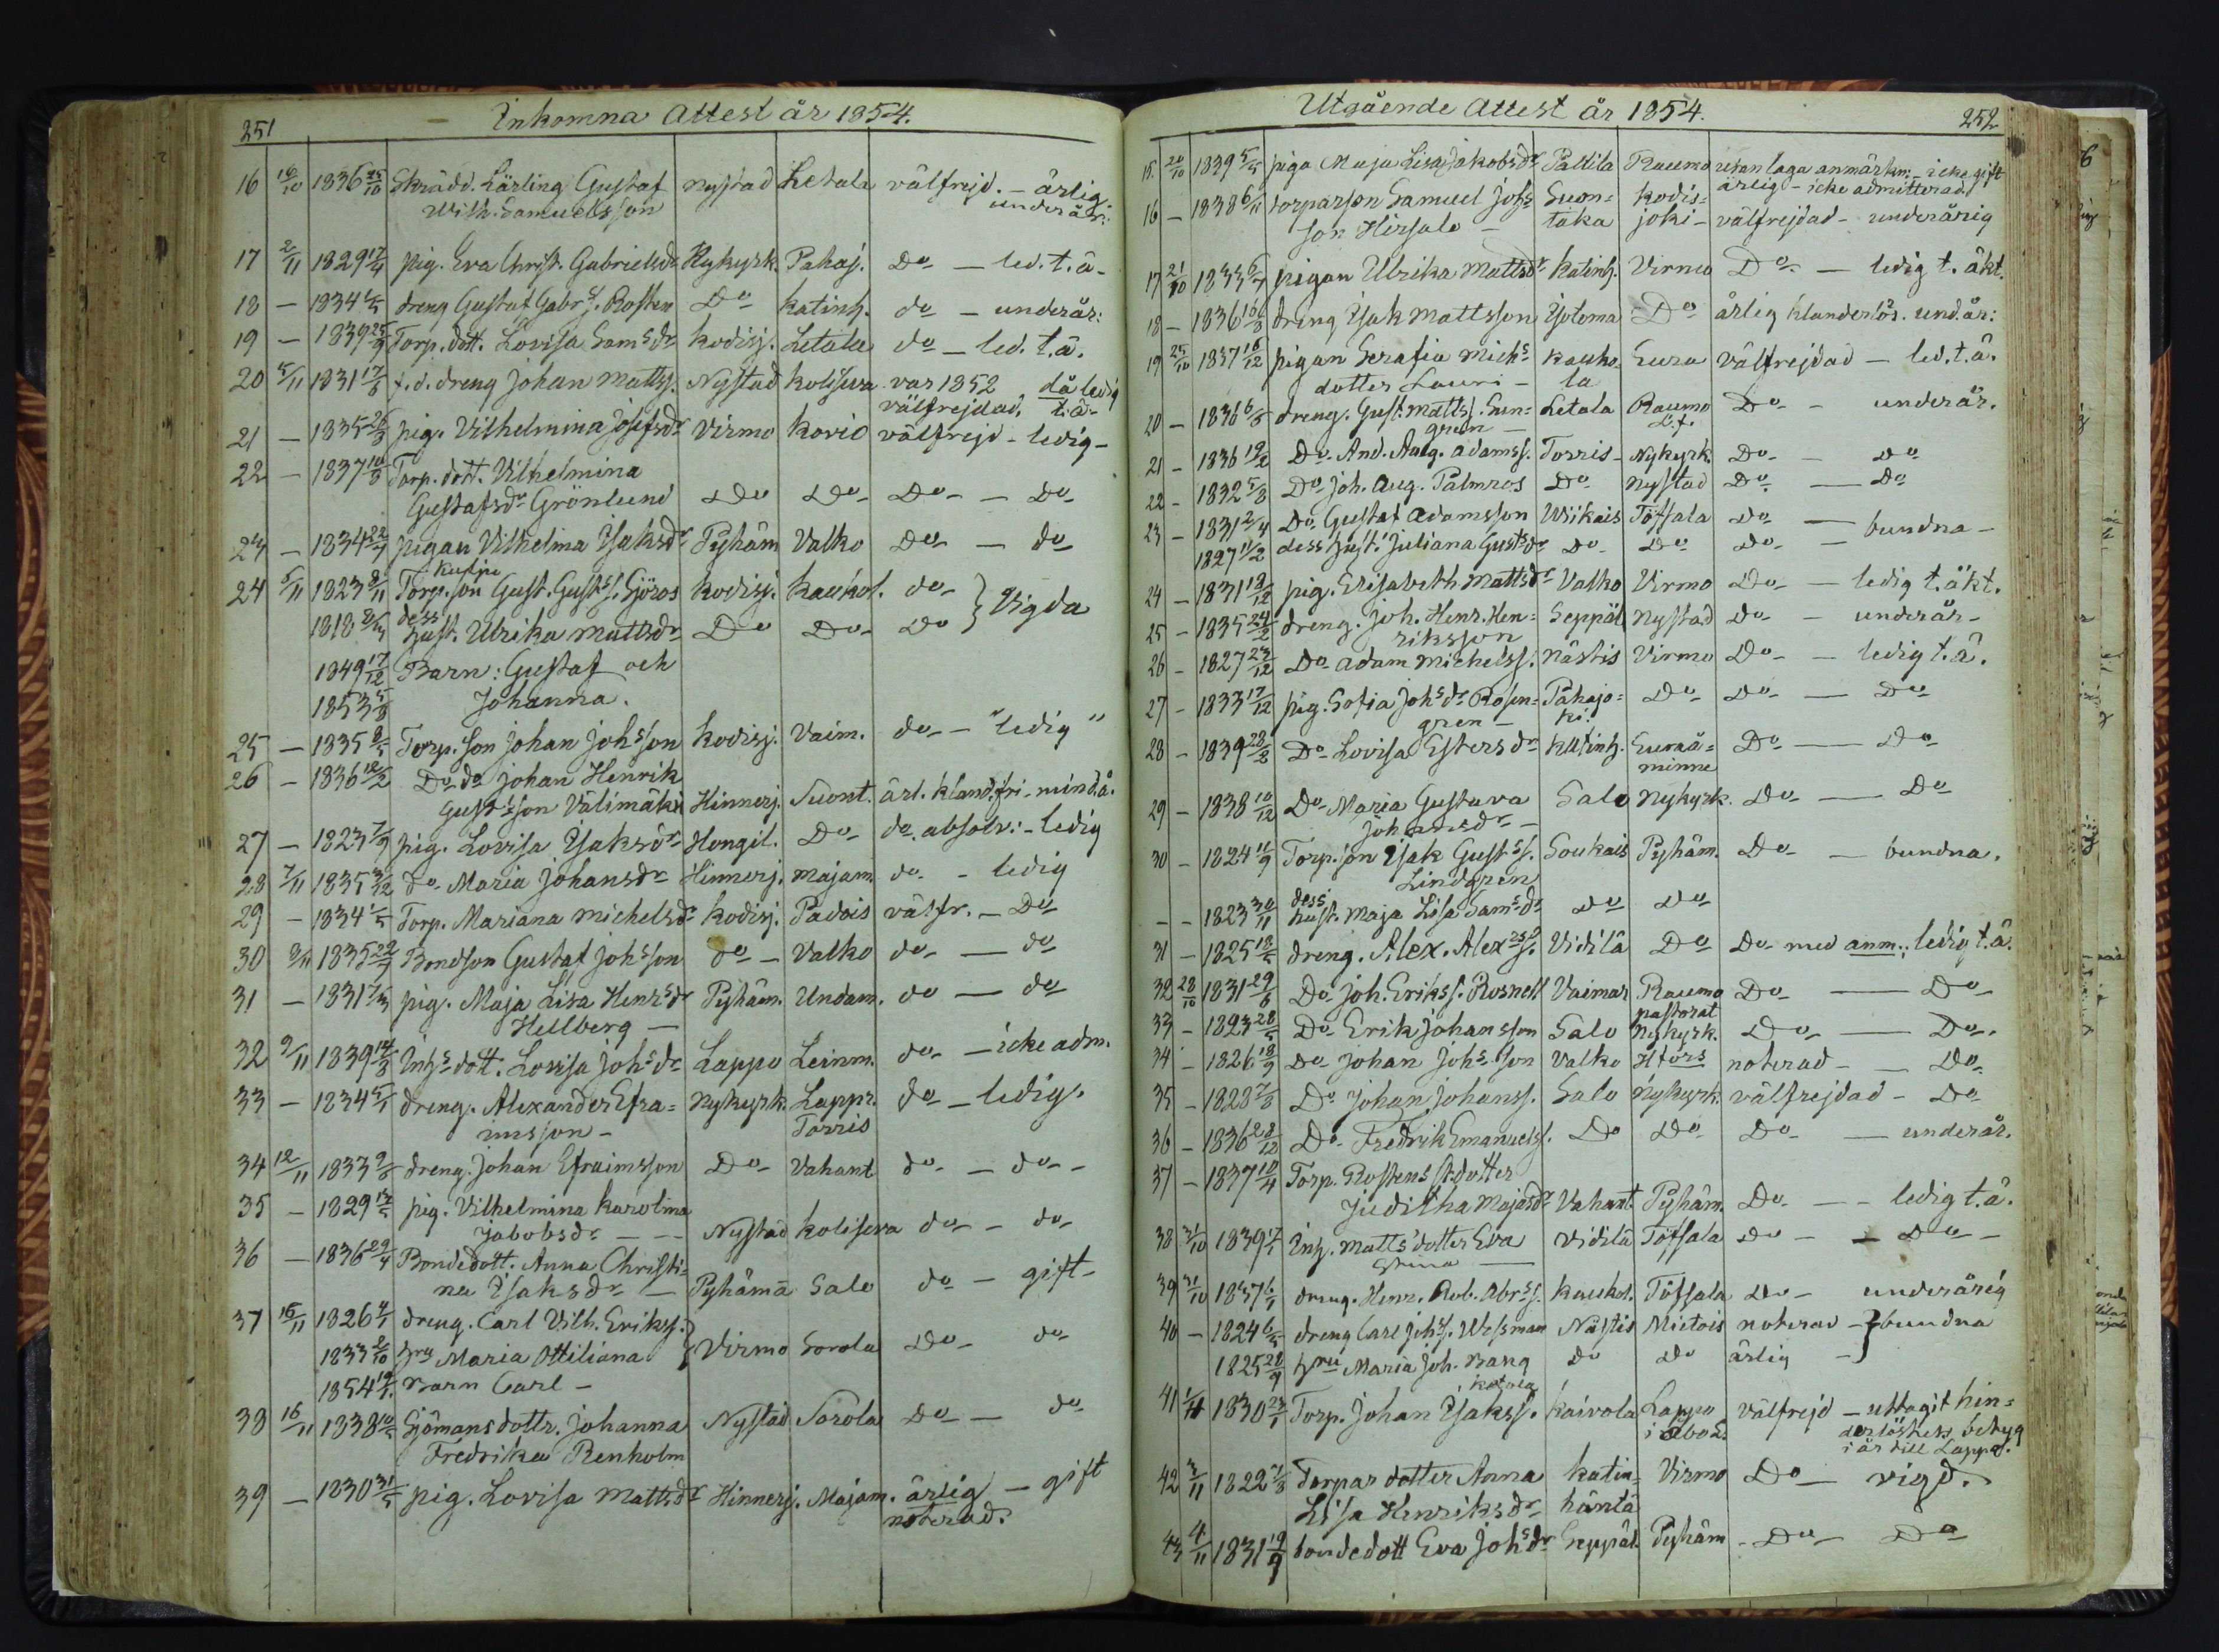 251
Inkomna Attest år 1854.
16 16/10 1836 25/10 Skrädd. Lärling Gustaf Nystad Letala välfrejd. - ärlig.
Wilh. Samuelsson underår:
17 2/11 1829 17/4 pig. Eva Christ. Gabrielsdr Nykyrk. Pahaj. Do - led. t. ä.
18 - 1834 dreng Gustaf Gabr.s. Rosten Do katinh. do - underår:
19 - 1839 25/9 Torp. dott. Lovisa Samsdr kodisj. Letala do - led. t. ä.
20 5/11 1831 17/8 f.d. dreng Johan Mattss. Nystad koliseva var 1852 då ledig
välfrejdad, t. ä.
21 - 1835 26/8 pig. Vilhelmina Josefsdr Virmo kovio välfrejd - ledig -
22 - 1837 10/8 Torp. dott. Vilhelmina
Gustafsdr Grönlund Do Do Do - Do
23 - 1834 22/7 pigan Vilhelma Isaksdr Pyhäm Valko Do - do
24 5/11 1823 8/11 Torp. son Gust. Gustss. Sjöros kodisj. kaukol. do } Vigda
1818 dess hust. Ulrika Mattsdr Do Do Do
1849 17/12 Barn: Gustaf och
1853 5/8 Johanna.
25 - 1835 8/5 Torp. son Johan Johsson kodisj. Vaim. do - "ledig"
26 - 1836 12/2 Do do Johan Henrik
Gustsson Välimäki Hinnerj. Suont. ärl. kland.fri - mind.å.
27 - 1823 7/9 pig. Lovisa Isaksdr Hongil. Do do. absolv: - ledig
28 7/11 1835 3/12 do. Maria Johansdr Hinnerj. majam. do. - ledig
29 - 1834 1/5 Torp. Mariana Michelsdr kodisj. Padois välfr. - Do
30 9/11 1835 22/7 Bondson Gustaf Johsson do - Valko do - do
31 - 1831 7/3 pig. Maja Lisa Henrsdr Pyhäm. Undam. do - do
Hellberg -
32 9/11 1839 14/8 Inhs dott. Lovisa Johsdr Lappo Leinm. do - icke adm.
33 - 1834 5/1 dreng. Alexander Efra= Nykyrk. Lappr. do - ledig.
imsson - Torris
34 12/11 1833 9/8 dreng. Johan Efraimsson Do Vahant do - do -
35 - 1829 pig. Vilhelmina karolina
Jabobsdr - - Nystad koliseva do - do
36 - 1836 29/4 Bondedott. Anna Christi=
na Isaksdr - Pyhämä Salo do - gift -
37 16/11 1826 4/1 dreng. Carl Vilh. Erikss. } Virmo Sorola Do - do
1833 2/10 hru Maria Ottiliana
1854 Barn Carl -
38 16/11 1838 10/5 Sjömans dottr. Johanna Nystad Sorola Do - do
Fredrika Renholm
39 - 1830 31/5 pig. Lovisa Mattsdr Hinnerj. Majam. ärlig - gift
noterad.
Utgående Attest år 1854.
252
15. 20/10 1839 5/5 piga Maja Lisa Jakobsdr Pallila Raumo utan laga anmärkn: - icke gift
ärlig - icke admitterad.
16 - 1838 6/11 torparson Samuel Johs Suon= kodis=
son Hirsalo - taka joki - välfrejdad - underårig
17 21/10 1833 6/7 pigan Ulrika Mattsdr katinh. Virmo Do. - ledig t. äkt.
18 - 1836 16/8 dreng Isak Mattsson Ijotema Do ärlig klanderlös. und.år:
19 25/10 1837 16/12 pigan Serafia Michs kauko Eura välfrejdad - led. t. ä.
dotter Lauri - la
20 - 1836 6/5 dreng. Gust. Matts. Sun= Letala Raumo Do - underår.
gren - L.f.
21 - 1836 19/2 Do. And. Aug. Adamss. Torris - Nykyrk. Do - Do
22 - 1832 5/8 Do Joh. Aug. Palmros Do Nystad Do - Do
23 - 1831 2/4 Do Gustaf Adamsson Wiikais Töfsala Do - bundna -
1827 11/2 dess hust. Juliana Gustsdr Do Do Do
24 - 1831 18/12 pig. Elisabeth Mattsdr Valko Virmo Do - ledig t. äkt.
25 - 1835 24/2 dreng. Joh. Henr. Hen= Seppäl Nystad Do - underår -
riksson
26 - 1827 23/12 Do Adam Michelss. Nästis Virmo Do - ledig t. ä.
27 - 1833 17/12 pig. Sofia Johsdr Rosen= Pahajo= Do Do - Do
gren - ki.
28 - 1839 28/2 Do Lovisa Estersdr katinh. Euraå= Do - Do
minne
29 - 1838 10/12 Do Maria Gustava Salo Nykyrk. Do - Do
Johansdr -
30 - 1824 11/9 Torp. son Isak Gustss. Soukais Pyhäm. Do - bundna.
Lindgren
- - 1823 30/11 dess hust. Maja Lisa Samsdr Do Do
31 - 1825 18/5 dreng. Alex. Alexss. Vidilä Do Do med anm:; ledig t. ä.
32 28/10 1831 29/6 Do Joh. Erikss. Rosnell Vaimar Raumo Do - Do
pastorat
33 - 1823 28/5 Do Erik Johansson Salo Nykyrk. Do - Do.
34 - 1826 18/9 Do Johan Johs.son Valko Hfors noterad - - Do
35 - 1828 7/8 Do Johan Johanss. Salo Nykyrk. välfrejdad - Do
36 - 1836 28/12 Do. Fredrik Emanuelss. Do Do Do - underår.
37 - 1837 18/4 Torp. Rostens st.dotter
Juditha Majasdr Vahant Pyhäm. Do - - ledig t. ä.
38 31/10 1839 17/1 Inh. Matts dotter Eva Vidilä Töfsala Do - - Do -
Stina -
39 31/10 1837 6/1 dreng. Henr. Rob. Abrss. kaukol. Töfsala Do - underårig
40 - 1824 6/5 dreng Carl Johs. Wessman Nästis Mietois noterad - } bundna
1825 28/9 hru Maria Joh. Bang do do ärlig -
41 1/11 1830 23/1 Torp. Johan Isakss. ketola kaivola Lappo välfrejd - uttagit hin=
i Åbo L. derlöshets betyg
i år till Lappo.
42 3/11 1822 21/8 Torpar dotter Anna katin= Virmo Do - vigd.
Lisa Henriksdr häntä
43 4/11 1831 19/9 bondedott Eva Johsdr Seppäl. Pyhäm - Do - Do